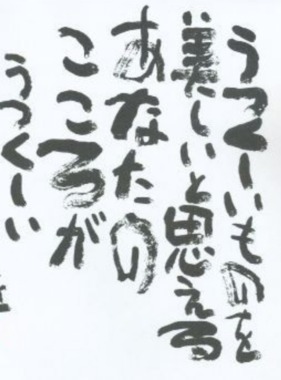 うつくしいものを
美しいと思える
あなたの
こころが
うつくしい